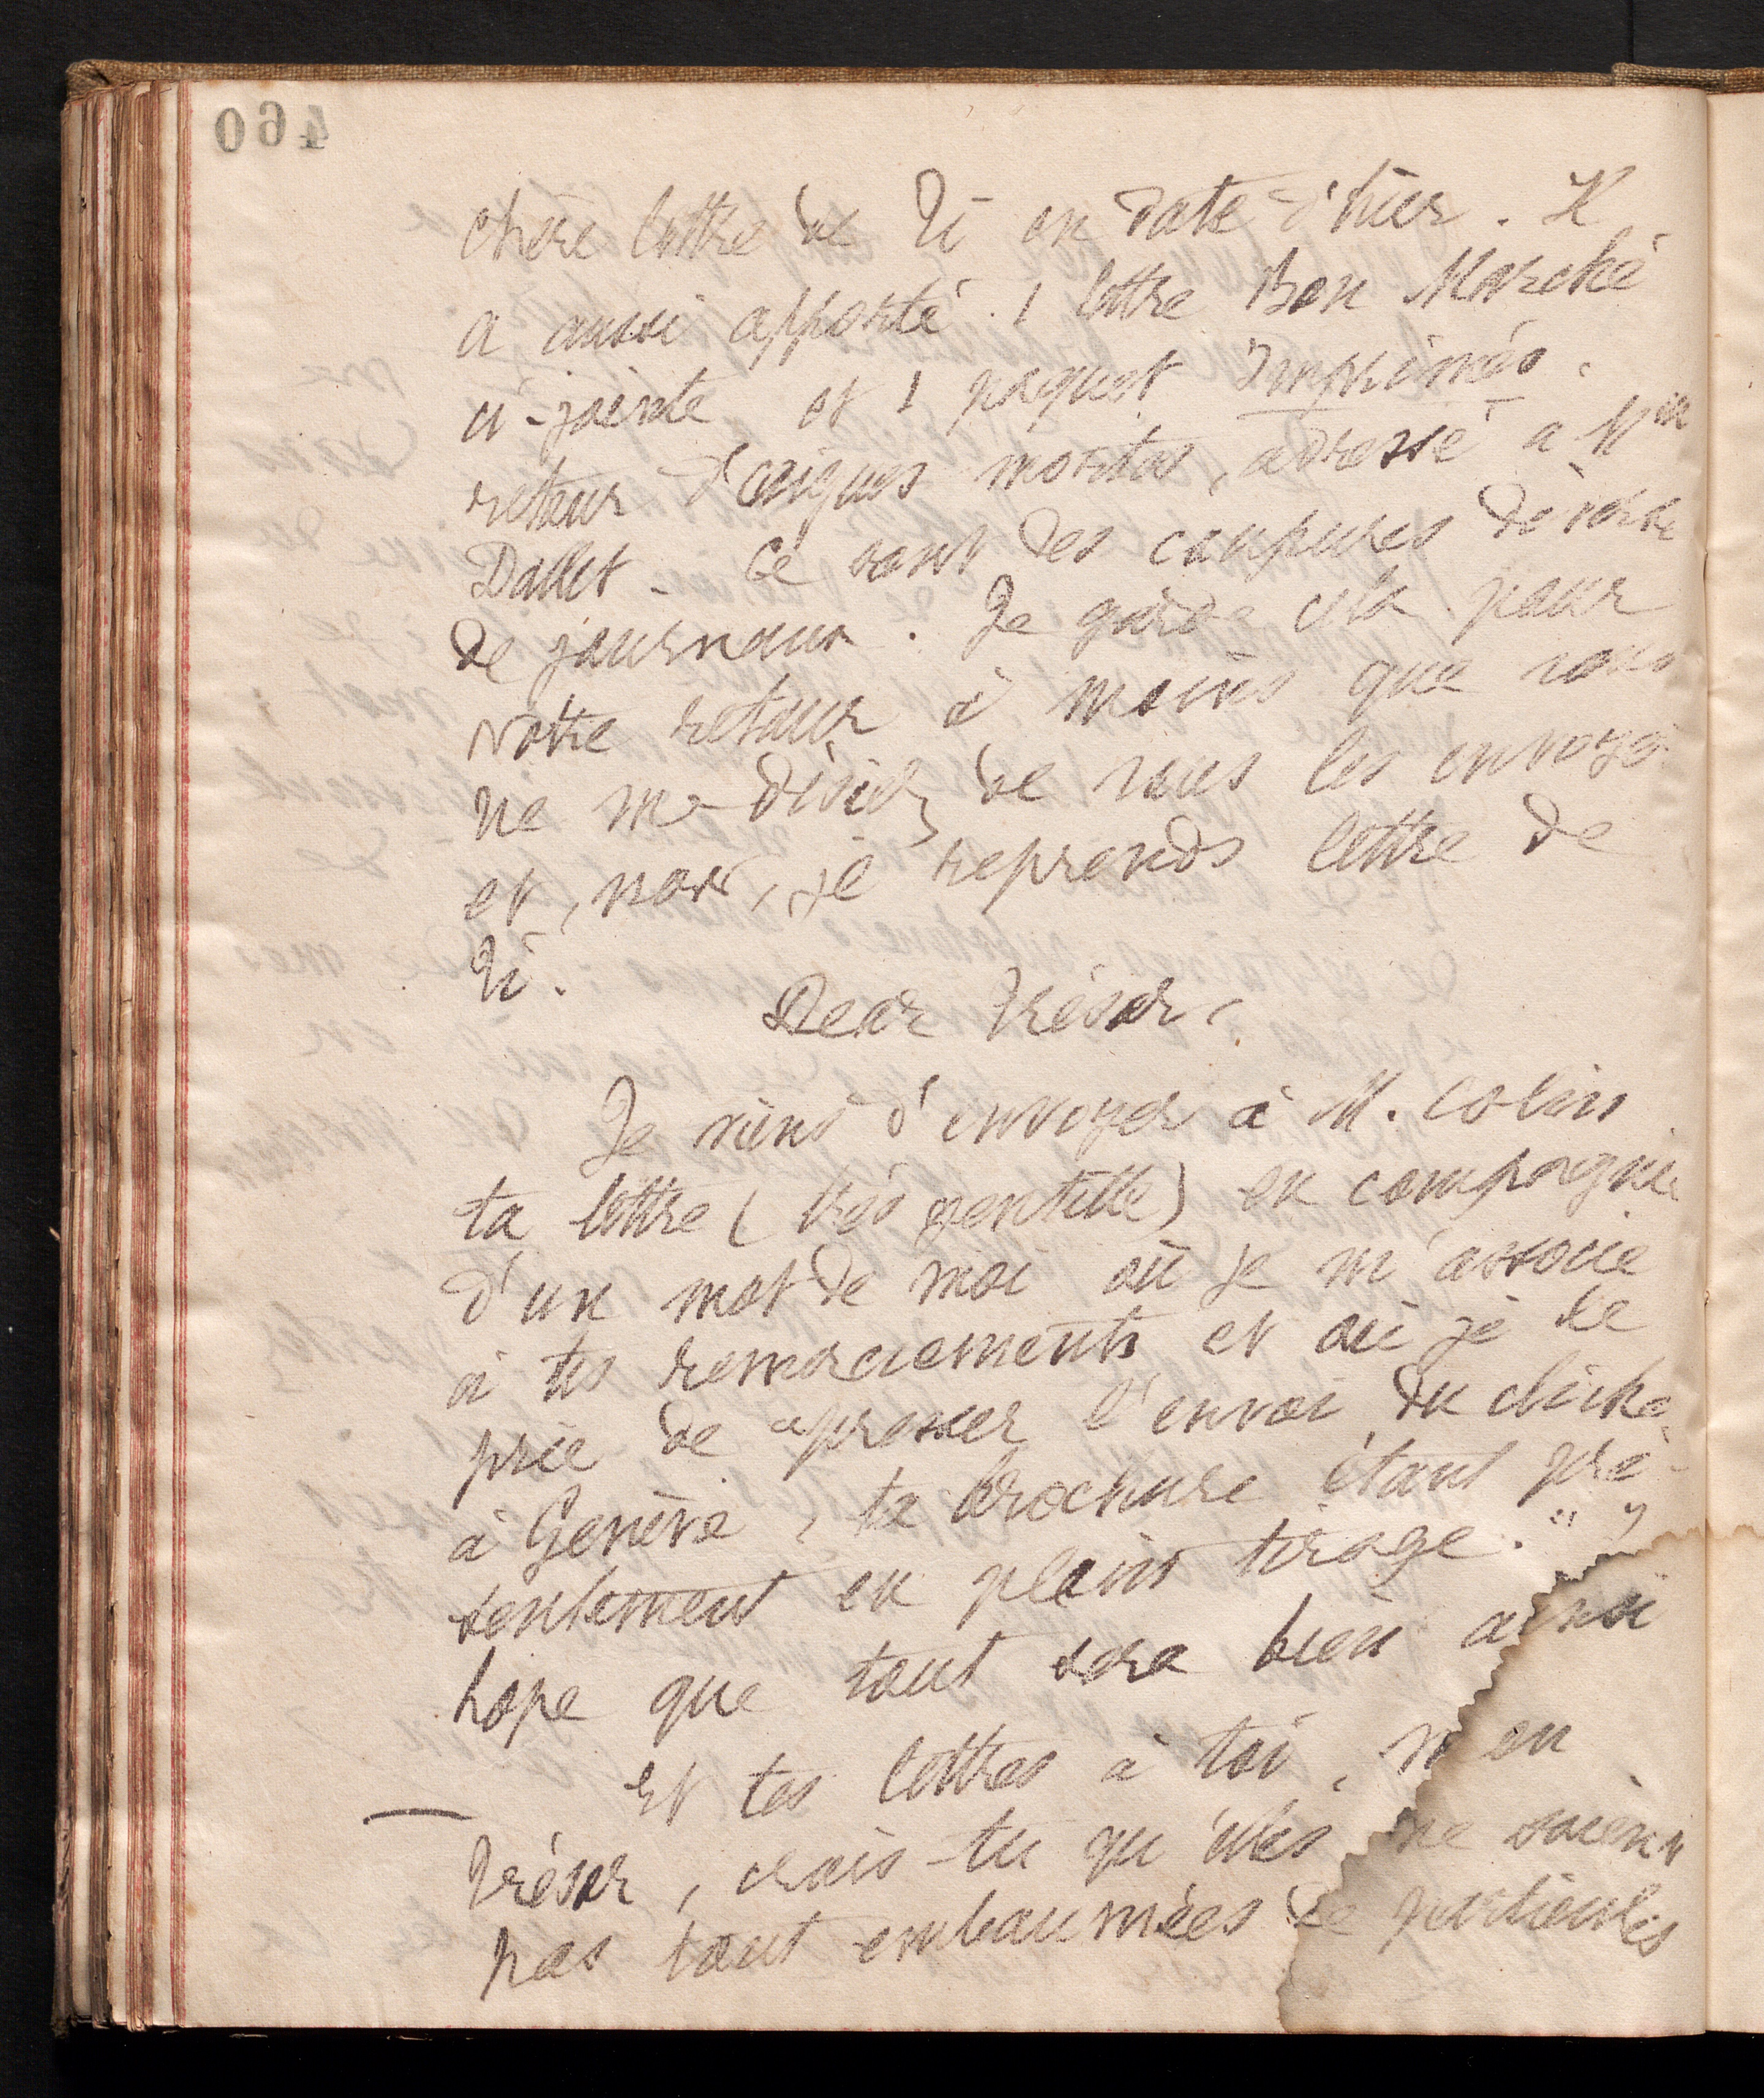 460
chère lettre de Ti en date d'hier. Il
a aussi apporté 1 lettre Bon Marché
ci-jointe et 1 paquet Imprimés.
retour d'Aigues mortes, adressé à Mme
Dallet - Ce sont des coupures de vente
de journaux. Je garde cela pour
votre retour à moins que vous
ne me disiez de vous les envoyer
et, now, je reprends lettre de
Ti.
Dear Trésor,
Je viens d'envoyer à M. Colin
ta lettre (très gentille) en compagnie
d'un mot de moi où je m'associe
à tes remerciements et où je le
prie de "presser l'envoi du cliché
à Genève, ta brochure étant pré-
sentement en plein tirage."
hope que tout sera bien ainsi
Et tes lettres à toi, en
Trésor, crois-tu qu'elles ne soient
pas tout embaumées de particules